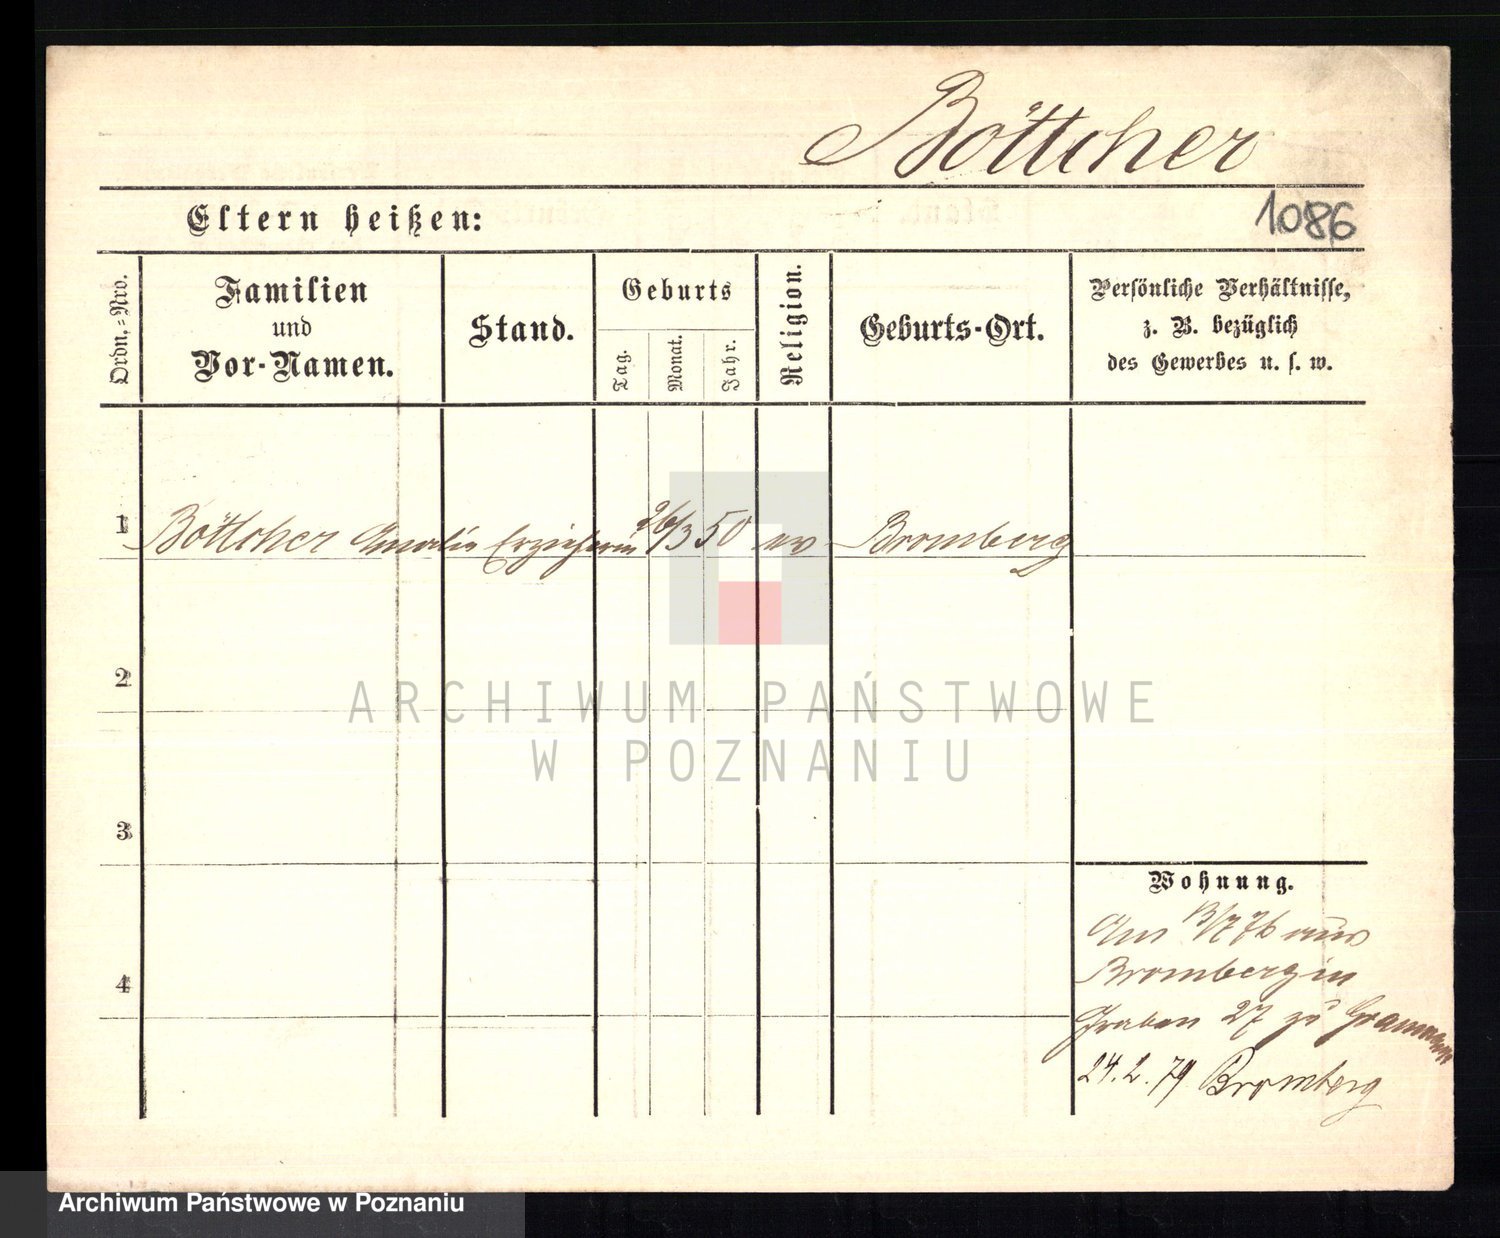 Böttcher
1086
Eltern heißen:
Ordn.=Nro.
Familien
und
Vor-Namen.
Stand.
Geburts
Tag.
Monat.
Jahr.
Religion.
Geburts-Ort.
Persönliche Verhältnisse,
z. B. bezüglich
des Gewerbes u. s. w.
1 Böttcher Amalie Erzieherin 26/3 50 ev Bromberg
2
3
4
Wohnung.
Am 13/7 76 aus
Bromberg in
Graben 27 zu
24.2.79 Bromberg
ARCHIWUM PAŃSTWOWE
W POZNANIU
Archiwum Państwowe w Poznaniu